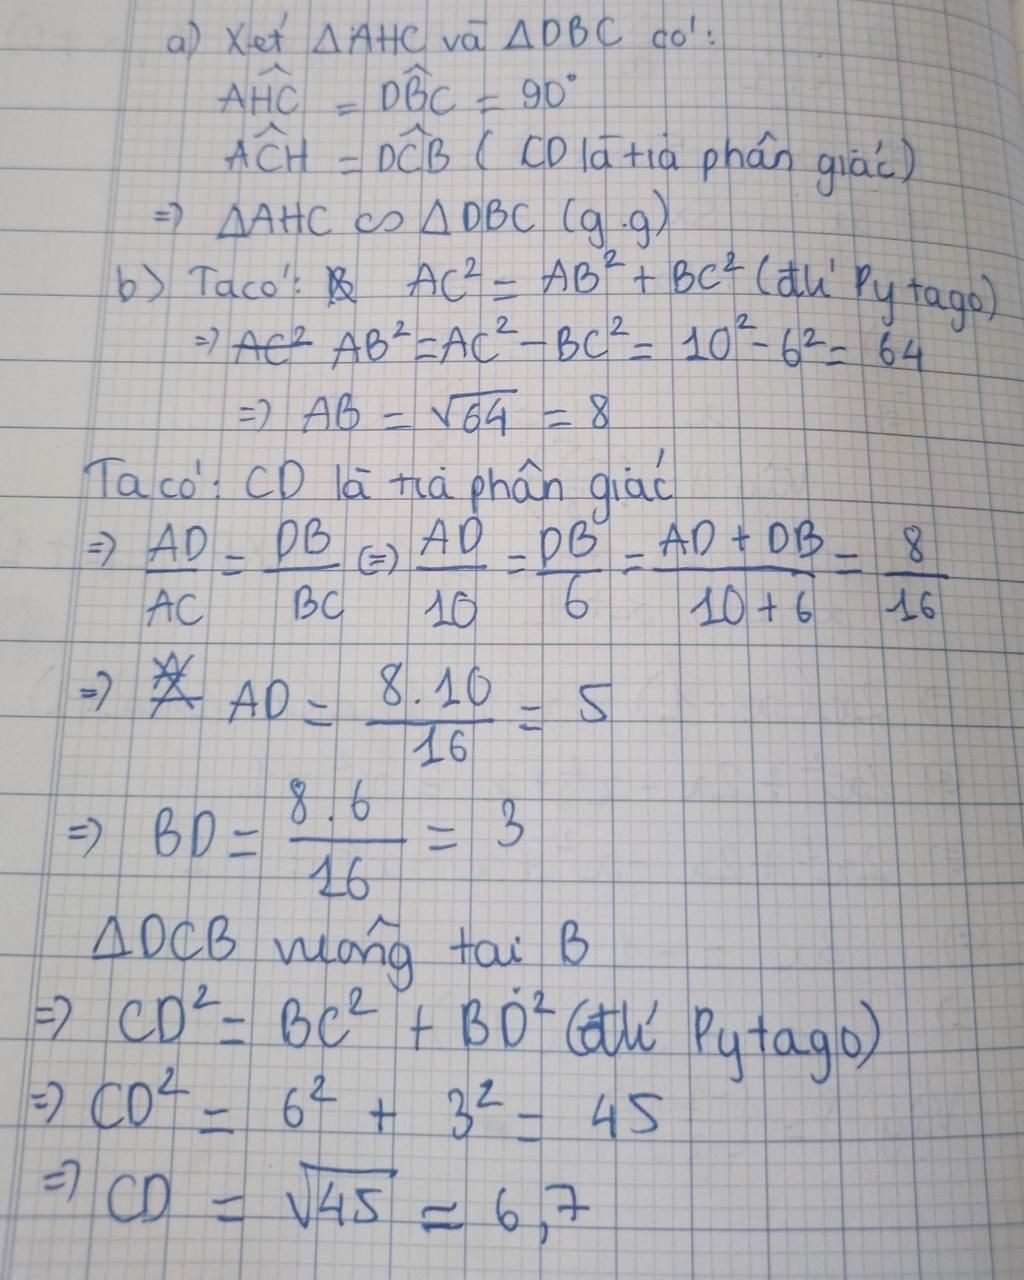 a) Xét ΔAHC và ΔDBC có:
AĤC = DB̂C = 90°
AĈH = DĈB ( CD là tia phân giác)
=> ΔAHC ∽ ΔDBC (g.g)
b) Ta có: AC² = AB² + BC² (đlí Pytago)
=> AC² AB² = AC² - BC² = 10² - 6² = 64
=> AB = √64 = 8
Ta có: CD là tia phân giác
=> AD/AC = DB/BC (=) AD/10 = DB/6 = AD + DB/10 + 6 = 8/16
=> AD = 8.10/16 = 5
=> BD = 8.6/16 = 3
ΔDCB vuông tại B
=> CD² = BC² + BD² (đlí Pytago)
=> CD² = 6² + 3² = 45
=> CD = √45 = 6,7